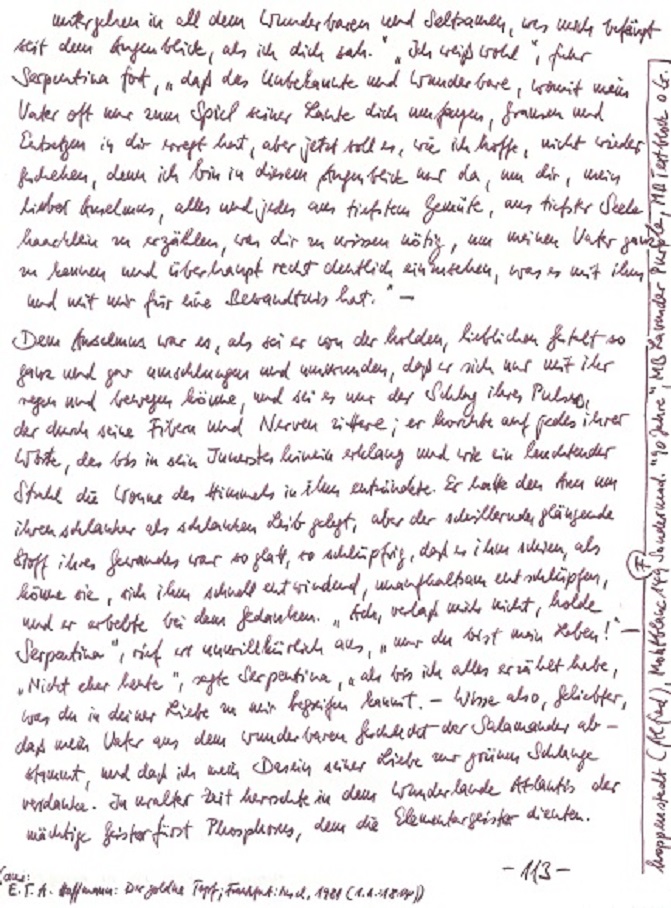 untergehen in all dem Wunderbaren und Seltsamen, was mich befängt
seit dem Augenblick, als ich dich sah." "Ich weiß wohl", fuhr
Serpentina fort, "daß das Unbekannte und Wunderbare, womit mein
Vater oft nur zum Spiel seiner Laune dich umfangen, Grausen und
Entsetzen in dir erregt hat, aber jetzt soll es, wie ich hoffe, nicht wieder
geschehen, denn ich bin in diesem Augenblick nur da, um dir, mein
lieber Anselmus, alles und jedes aus tiefstem Gemüte, aus tiefster Seele
haarklein zu erzählen, was dir zu wissen nötig, um meinen Vater ganz
zu kennen und überhaupt recht deutlich einzusehen, was es mit ihm
und mit mir für eine Bewandtnis hat." —
Dem Anselmus war es, als sei er von der holden, lieblichen Gestalt so
ganz und gar umschlungen und umwunden, daß er sich nur mit ihr
regen und bewegen könne, und sei es nur der Schlag ihres Pulses,
der durch seine Fibern und Nerven zittere; er horchte auf jedes ihrer
Worte, das bis in sein Innerstes hinein erklang und wie ein leuchtender
Strahl die Wonne des Himmels in ihm entzündete. Er hatte den Arm um
ihren schlanker als schlanken Leib gelegt, aber der schillernde glänzende
Stoff ihres Gewandes war so glatt, so schlüpfrig, daß es ihm schien, als
könne sie, sich ihm schnell entwindend, unaufhaltsam entschlüpfen,
und er erbebte bei dem Gedanken. "Ach, verlaß mich nicht, holde
Serpentina", rief er unwillkürlich aus, "nur du bist mein Leben!" —
"Nicht eher heute", sagte Serpentina, "als bis ich alles erzählt habe,
was du in deiner Liebe zu mir begreifen kannst. — Wisse also, Geliebter,
daß mein Vater aus dem wunderbaren Geschlecht der Salamander ab-
stammt, und daß ich mein Dasein seiner Liebe zur grünen Schlange
verdanke. In uralter Zeit herrschte in dem Wunderlande Atlantis der
mächtige Geisterfürst Phosphorus, dem die Elementargeister dienten.
- 113 -
(aus:
E.T.A. Hoffmann: Der goldne Topf; Frankfurt: Insel, 1981
"90 Jahre", MB Lavender Purple, MB Textblock o.L.
F